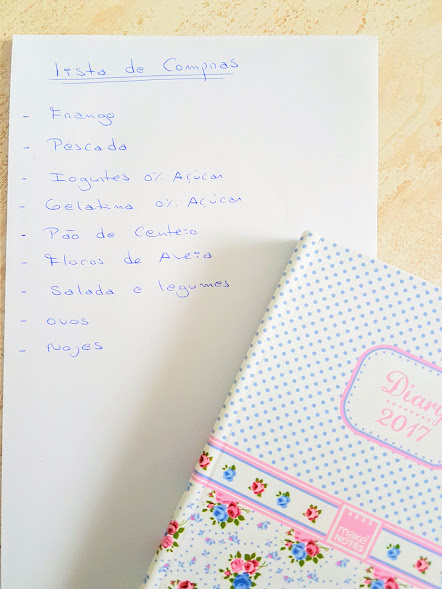 Lista de Compras
- Frango
- Pescada
- Iogurtes 0% Açúcar
- Gelatina 0% Açúcar
- Pão de Centeio
- Flocos de Aveia
- Salada e legumes
- ovos
- Nozes
Diary
2017
make
NOTES